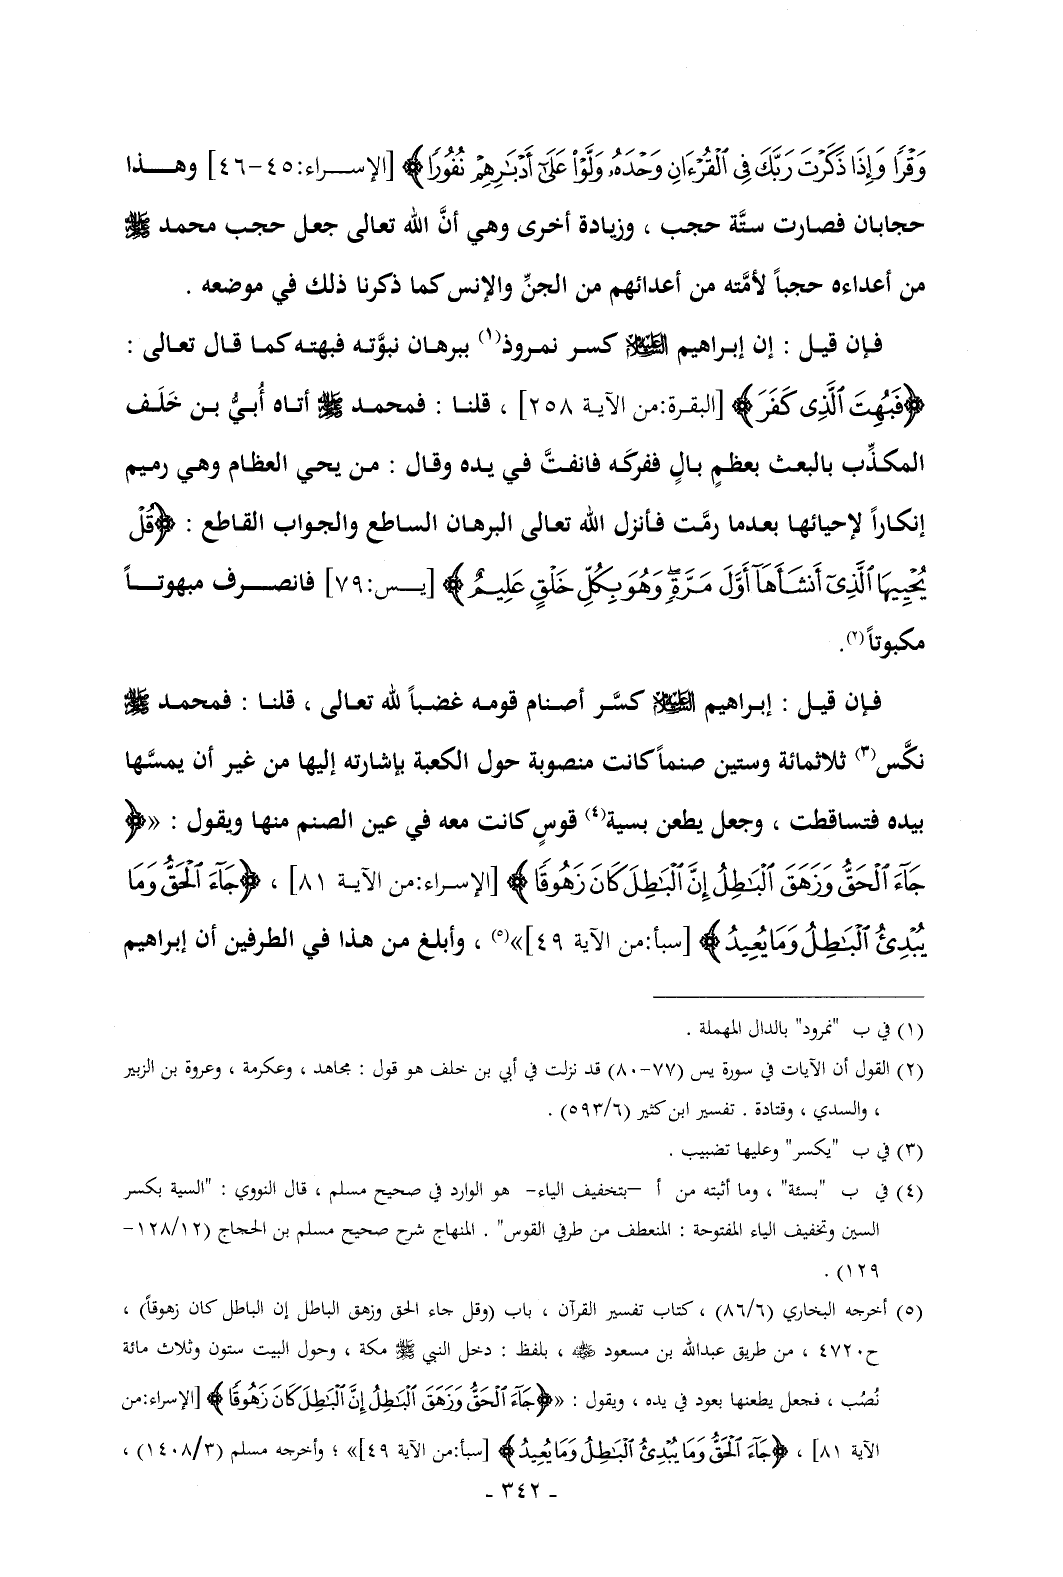 وَقْرًا وَإِذَا ذَكَرْتَ رَبَّكَ فِي ٱلْقُرْءَانِ وَحْدَهُۥ وَلَّوْا۟ عَلَىٰٓ أَدْبَٰرِهِمْ نُفُورًا﴾ [الإسراء:٤٥-٤٦] وهذا
حجابان فصارت ستَّة حجب ، وزيادة أخرى وهي أنَّ الله تعالى جعل حجب محمد ﷺ
من أعداءه حجباً لأمَّته من أعدائهم من الجنِّ والإنس كما ذكرنا ذلك في موضعه .
فإن قيل : إن إبراهيم العليه السلام كسر نمروذ(١) ببرهان نبوَّته فبهته كما قال تعالى :
﴿فَبُهِتَ ٱلَّذِى كَفَرَ﴾ [البقرة:من الآية ٢٥٨] ، قلنا : فمحمد ﷺ أتاه أُبيُّ بن خَلَف
المكذِّب بالبعث بعظمٍ بالٍ ففركَه فانفتَّ في يده وقال : من يحي العظام وهي رميم
إنكاراً لإحيائها بعدما رمَّت فأنزل الله تعالى البرهان الساطع والجواب القاطع : ﴿قُلْ
يُحْيِيهَا ٱلَّذِىٓ أَنشَأَهَآ أَوَّلَ مَرَّةٍۢ وَهُوَ بِكُلِّ خَلْقٍ عَلِيمٌ﴾ [يـس:٧٩] فانصرف مبهوتاً
مكبوتاً(٢).
فإن قيل : إبراهيم العليه السلام كسَّر أصنام قومه غضباً لله تعالى ، قلنا : فمحمد ﷺ
نكَّس(٣) ثلاثمائة وستين صنماً كانت منصوبة حول الكعبة بإشارته إليها من غير أن يمسَّها
بيده فتساقطت ، وجعل يطعن بسية(٤) قوسٍ كانت معه في عين الصنم منها ويقول : «﴿
جَآءَ ٱلْحَقُّ وَزَهَقَ ٱلْبَٰطِلُ إِنَّ ٱلْبَٰطِلَ كَانَ زَهُوقًا﴾ [الإسراء:من الآية ٨١] ، ﴿جَآءَ ٱلْحَقُّ وَمَا
يُبْدِئُ ٱلْبَٰطِلُ وَمَا يُعِيدُ﴾ [سبأ:من الآية ٤٩]»(٥) ، وأبلغ من هذا في الطرفين أن إبراهيم
(١) في ب "نمرود" بالدال المهملة .
(٢) القول أن الآيات في سورة يس (٧٧-٨٠) قد نزلت في أبي بن خلف هو قول : مجاهد ، وعكرمة ، وعروة بن الزبير
، والسدي ، وقتادة . تفسير ابن كثير (٥٩٣/٦) .
(٣) في ب "يكسر" وعليها تضبيب .
(٤) في ب "بسئة" ، وما أثبته من أ –بتخفيف الياء- هو الوارد في صحيح مسلم ، قال النووي : "السية بكسر
السين وتخفيف الياء المفتوحة : المنعطف من طرفي القوس" . المنهاج شرح صحيح مسلم بن الحجاج (١٢٨/١٢-
١٢٩) .
(٥) أخرجه البخاري (٨٦/٦) ، كتاب تفسير القرآن ، باب (وقل جاء الحق وزهق الباطل إن الباطل كان زهوقاً) ،
ح٤٧٢٠ ، من طريق عبدالله بن مسعود رضي الله عنه ، بلفظ : دخل النبي ﷺ مكة ، وحول البيت ستون وثلاث مائة
نُصُب ، فجعل يطعنها بعود في يده ، ويقول : «﴿جَآءَ ٱلْحَقُّ وَزَهَقَ ٱلْبَٰطِلُ إِنَّ ٱلْبَٰطِلَ كَانَ زَهُوقًا﴾ [الإسراء:من
الآية ٨١] ، ﴿جَآءَ ٱلْحَقُّ وَمَا يُبْدِئُ ٱلْبَٰطِلُ وَمَا يُعِيدُ﴾ [سبأ:من الآية ٤٩]» ؛ وأخرجه مسلم (١٤٠٨/٣) ،
- ٣٤٢ -